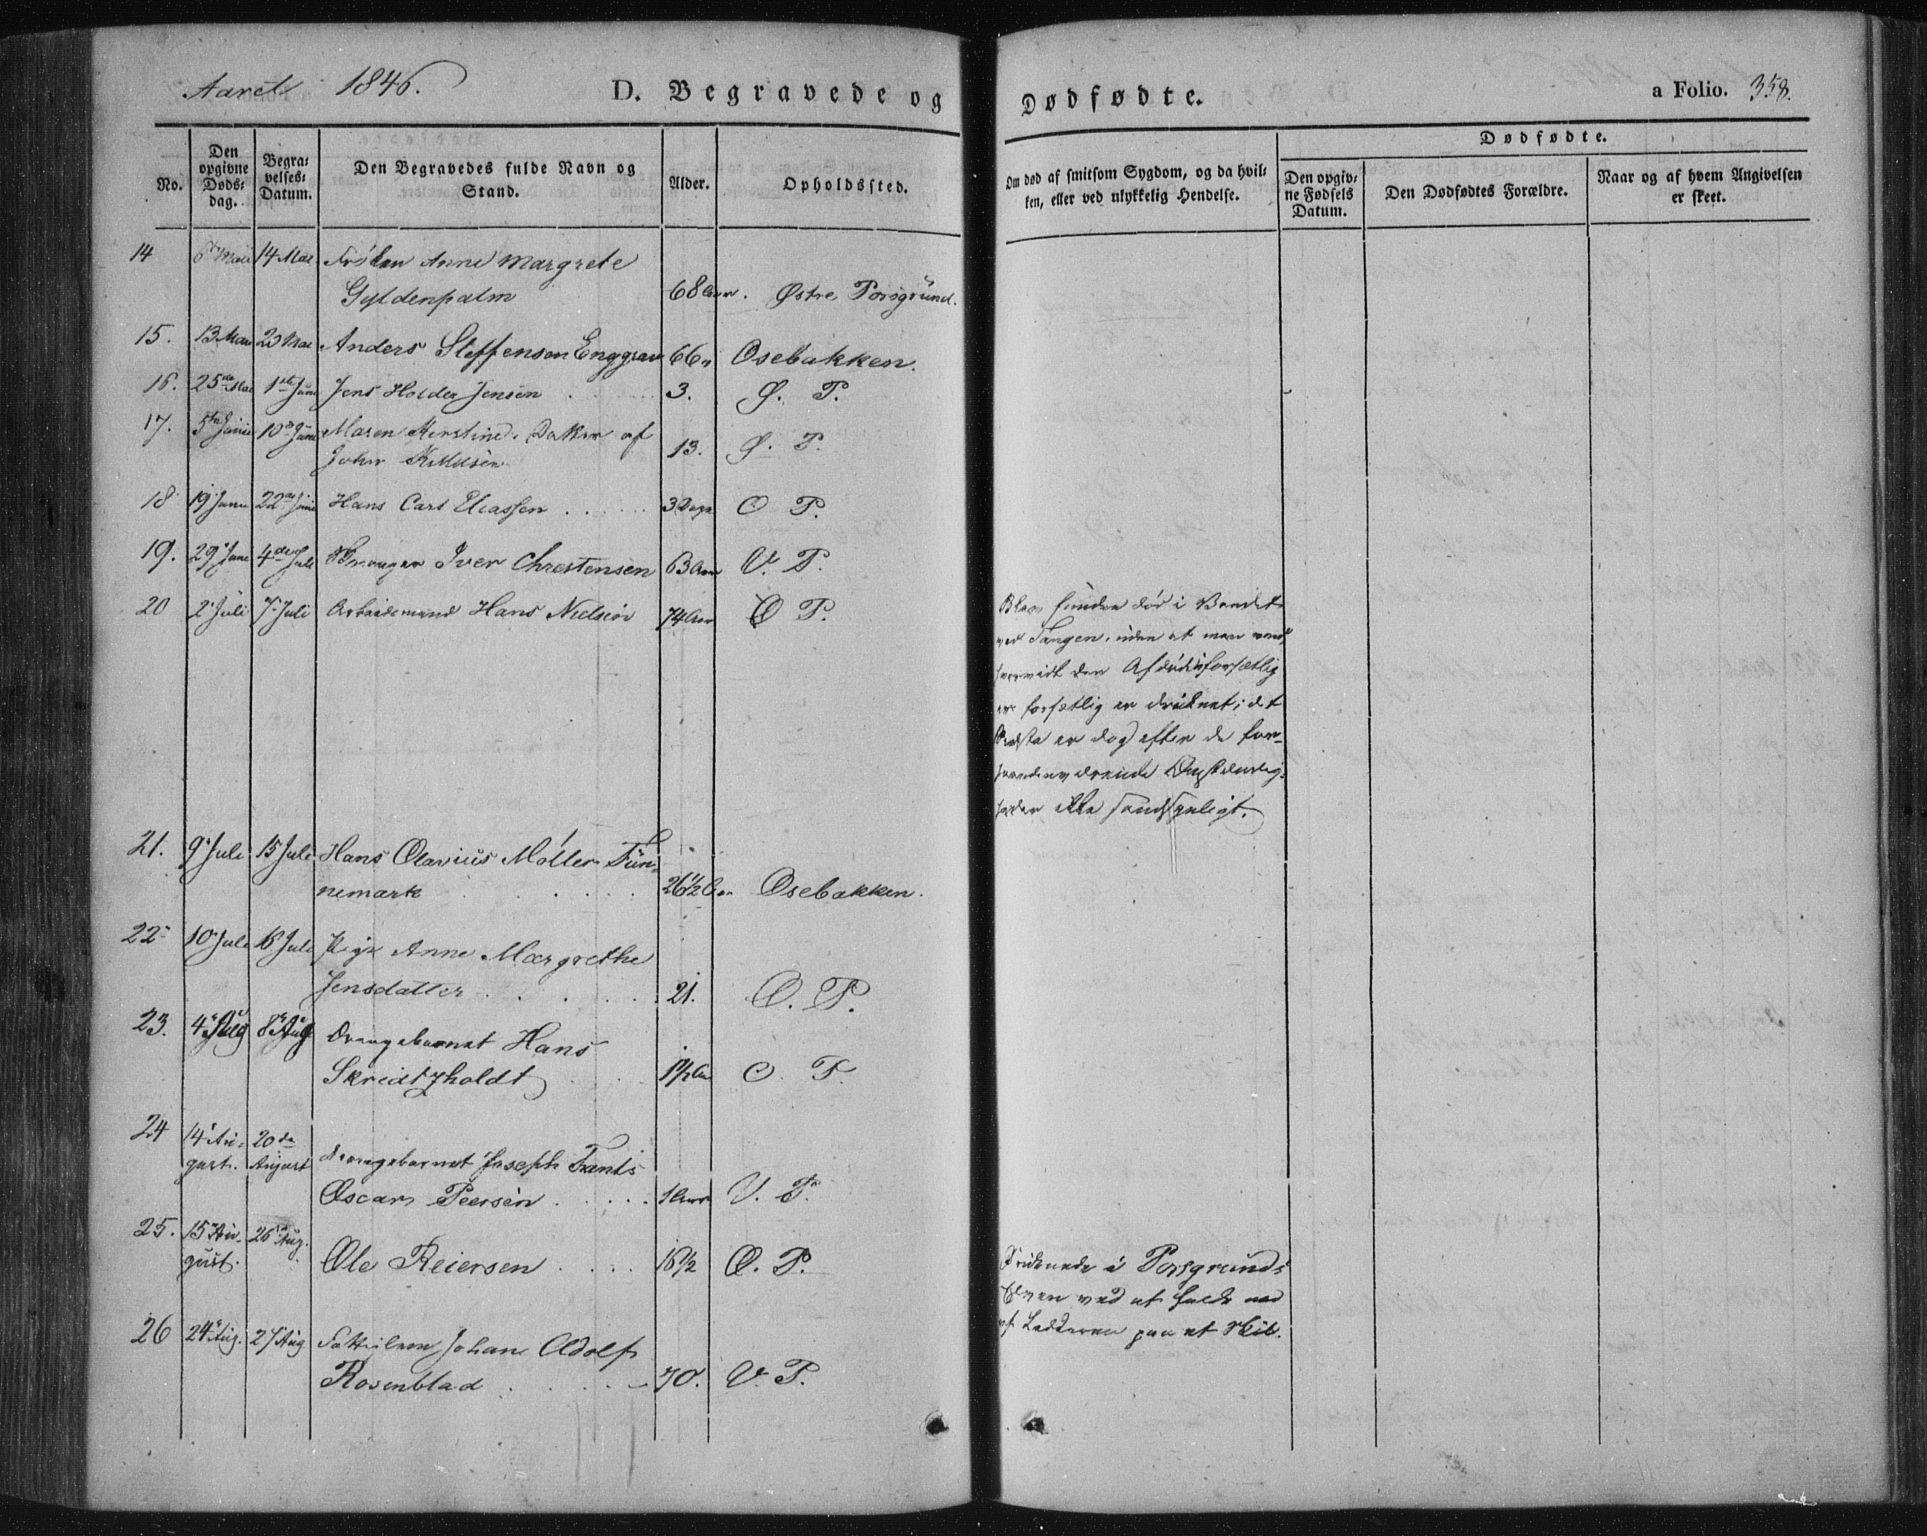 Aaret 1846.
D. Begravede og Dødfødte.
a Folio. 358.
No.
Den opgivne Døds- dag.
Begra- velses- Datum.
Den Begravedes fulde Navn og Stand.
Alder.
Opholdssted.
Om død af smitsom Sygdom, og da hvil- ken, eller ved ulykkelig Hendelse.
Dødfødte.
Den opgiv- ne Fødsels Datum.
Den Dødfødtes Forældre.
Naar og af hvem Angivelsen er skeet.
14 6 Mai 14 Mai Frøken Anne Margrete
Gyldenpalm 68 Aar. Østre Porsgrund.
15. 13 Mai 23 Mai Anders Steffensen Enggrav 66 Osebakken.
16. 25de Mai 1ste Juni Jens Holder Jensen 3. Ø. P.
17. 5te Junii 10de Juni Maren Kirstine, Datter af
John Knudsen 13. Ø. P.
18 19 Juni 22de Juni Hans Carl Eliassen 3 Dage O P.
19. 29 Juni 4de Juli Iver Chrestensen 63 Aar V. P.
20 2 Juli 7 Juli Arbeidsmand Hans Nielsen 74 Aar O P.
Blev funden død i Vandet
ved Tangen, uden at man veed
hvorvidt den Afdøde uforsætlig
er forsætlig er druknet; det
sidste er dog efter de for-
haandenværende Omstændig-
heder ikke sandsynligt.
21. 9 Juli 15 Juli Hans Olavius Møller Tün-
nemark 26 1/2 Aar Osebakken.
22 10 Juli 16 Juli Pige Anne Margrethe
Jensdatter 21. O. P.
23. 4 Aug 8 Aug Drengebarnet Hans
Skredtzholdt 1 1/2 Aar O. P.
24 14 Au- gust. 20de August Drengebarnet Joseph Frants
Oscar Peersen 1 Aar V. P.
25. 15 Au- gust. 26 Aug. Ole Reiersen 16 1/2 O. P.
Druknede i Porsgrunds
Elven ved at falde ned
af Ladderen paa et Skib.
26 24 Aug. 27 Aug Johan Adolf
Rosenblad 70. V. P.